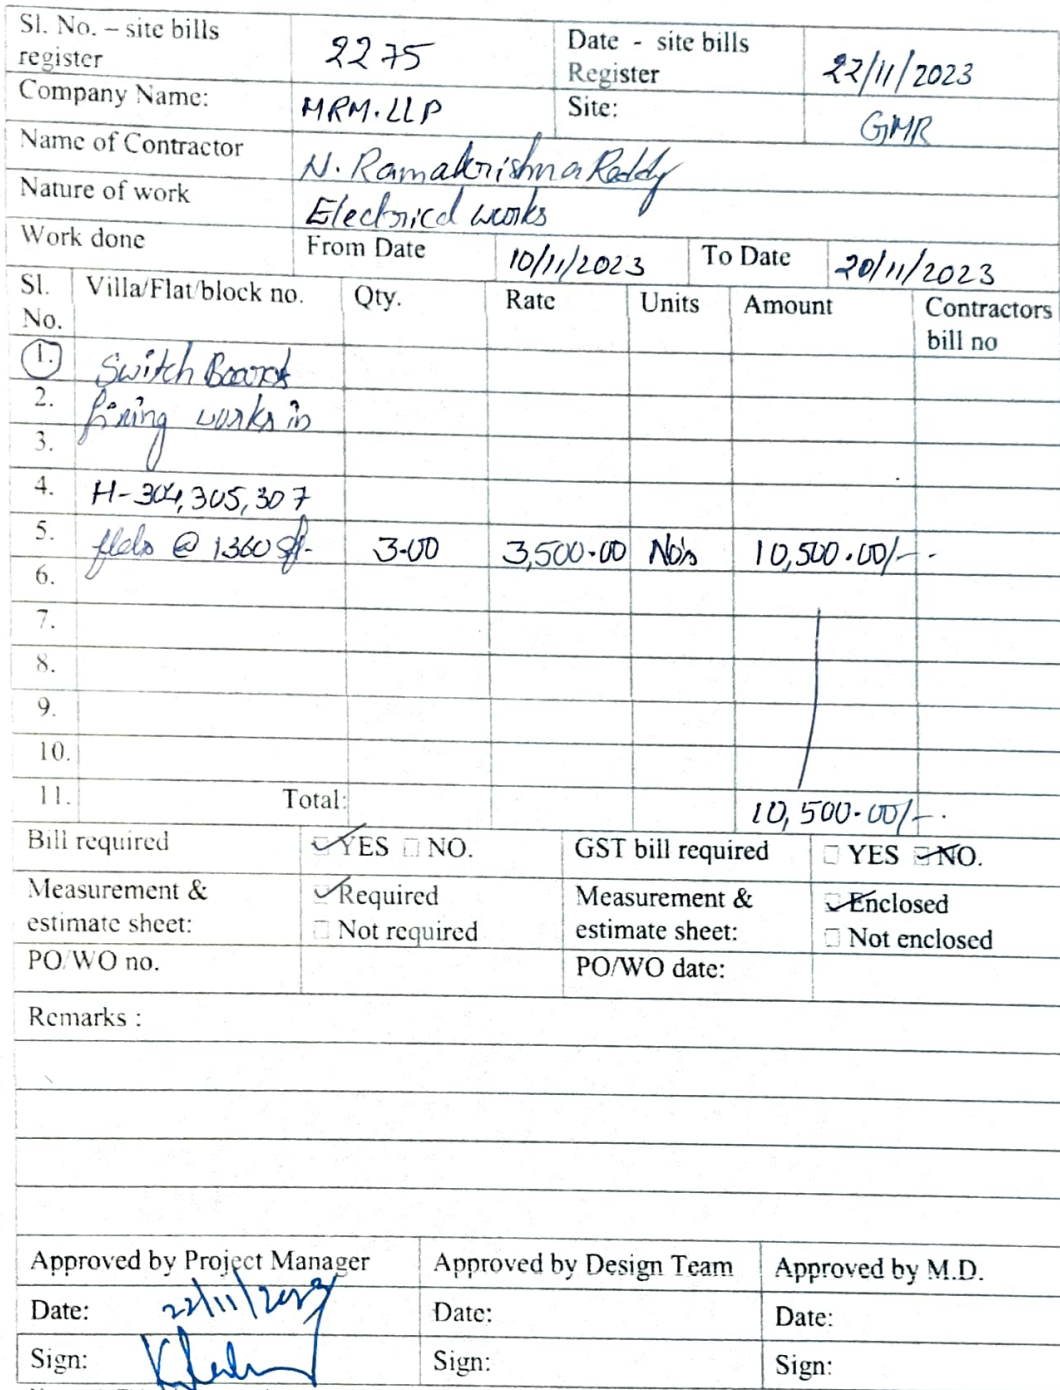 Sl. No. – site bills register 2275 Date - site bills Register 22/11/2023
Company Name: MRM.LLP Site: GMR
Name of Contractor N. Ramakrishna Reddy
Nature of work Electrical works
Work done From Date 10/11/2023 To Date 20/11/2023
Sl. No. Villa/Flat/block no. Qty. Rate Units Amount Contractors bill no
1. Switch Board
2. fixing works in
3.
4. H-304,305,307
5. flats @ 1360 sft. 3-00 3,500.00 No's 10,500.00/-
6.
7.
8.
9.
10.
11. Total: 10,500.00/-
Bill required YES NO. GST bill required YES NO.
Measurement & estimate sheet: Required Not required Measurement & estimate sheet: Enclosed Not enclosed
PO/WO no. PO/WO date:
Remarks :
Approved by Project Manager Approved by Design Team Approved by M.D.
Date: 22/11/2023 Date: Date:
Sign: Sign: Sign: